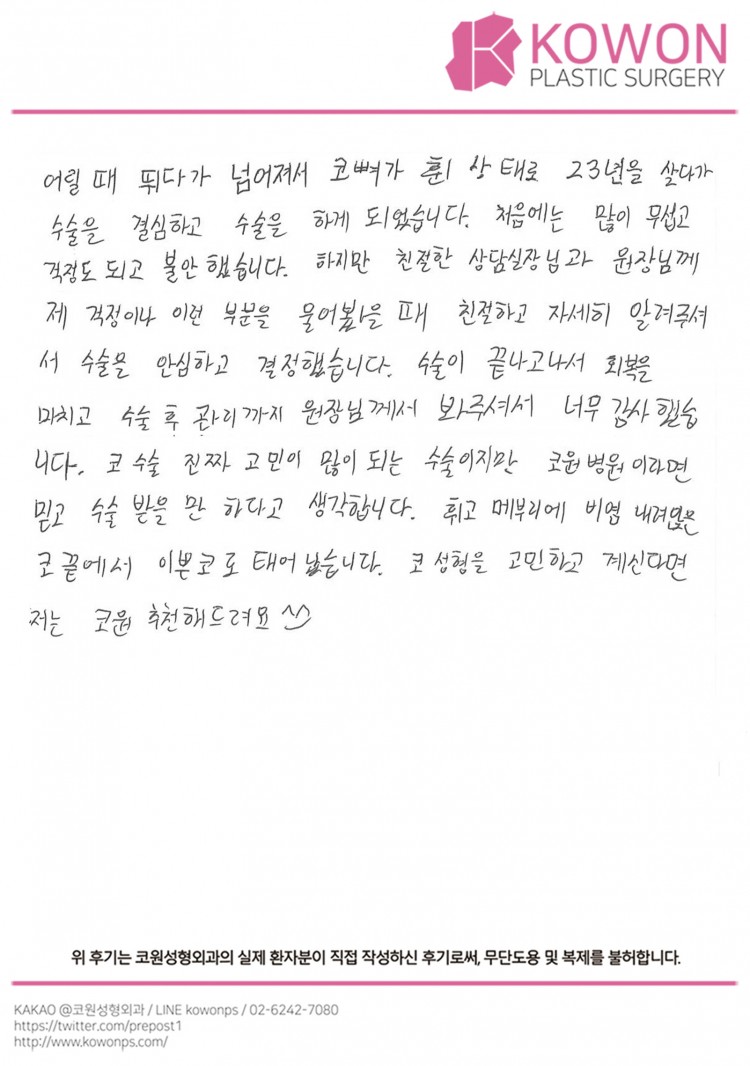 KOWON
PLASTIC SURGERY
어릴 때 뛰다가 넘어져서 코뼈가 휜 상태로 23년을 살다가
수술을 결심하고 수술을 하게 되었습니다. 처음에는 많이 무섭고
걱정도 되고 불안했습니다. 하지만 친절한 상담실장님과 원장님께
제 걱정이나 이런 부분을 물어봤을 때 친절하고 자세히 알려주셔
서 수술을 안심하고 결정했습니다. 수술이 끝나고나서 회복을
마치고 수술 후 관리까지 원장님께서 봐주셔서 너무 감사했습
니다. 코 수술 진짜 고민이 많이 되는 수술이지만 코원병원이라면
믿고 수술 받을 만 하다고 생각합니다. 휘고 메부리에 비염 내려앉은
코 끝에서 이쁜코로 태어났습니다. 코 성형을 고민하고 계신다면
저는 코원 추천해드려요 ^^
위 후기는 코원성형외과의 실제 환자분이 직접 작성하신 후기로써, 무단도용 및 복제를 불허합니다.
KAKAO @코원성형외과 / LINE kowonps / 02-6242-7080
https://twitter.com/prepost1
http://www.kowonps.com/